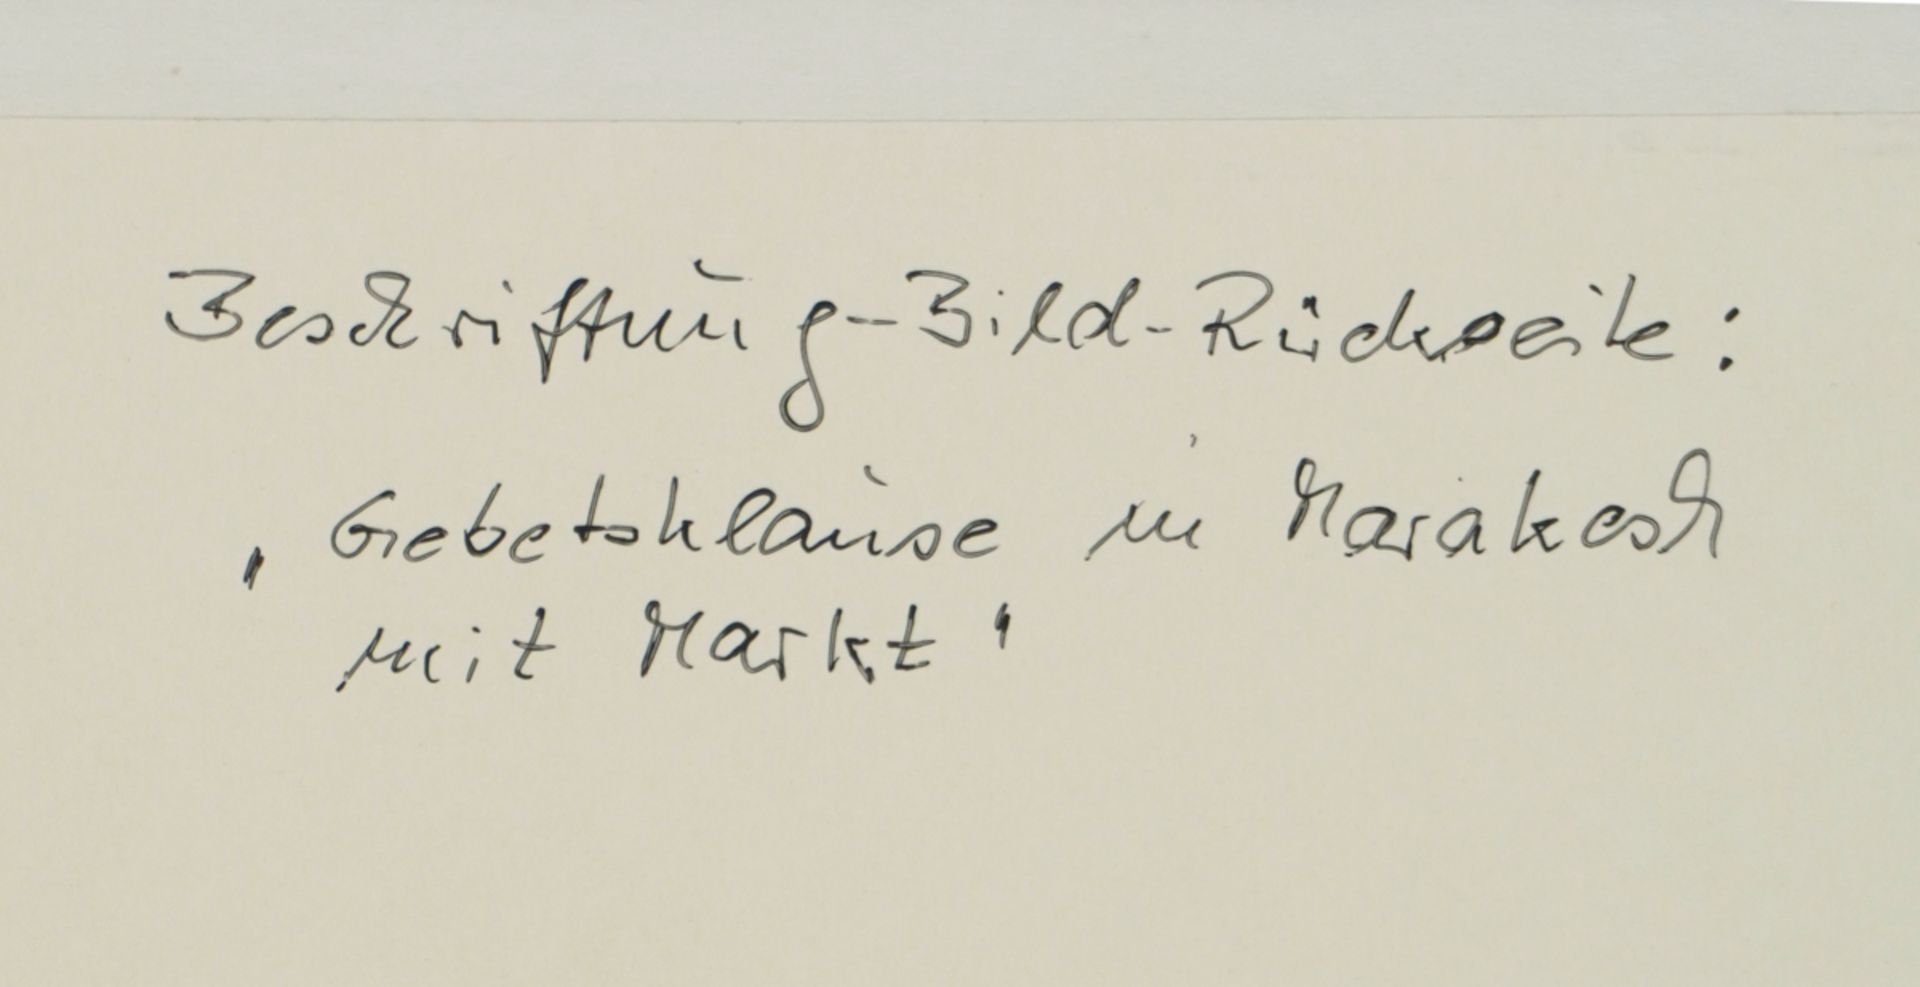 Beschriftung-Bild-Rückseite:
„Gebetsklause in Marakesch
mit Markt"